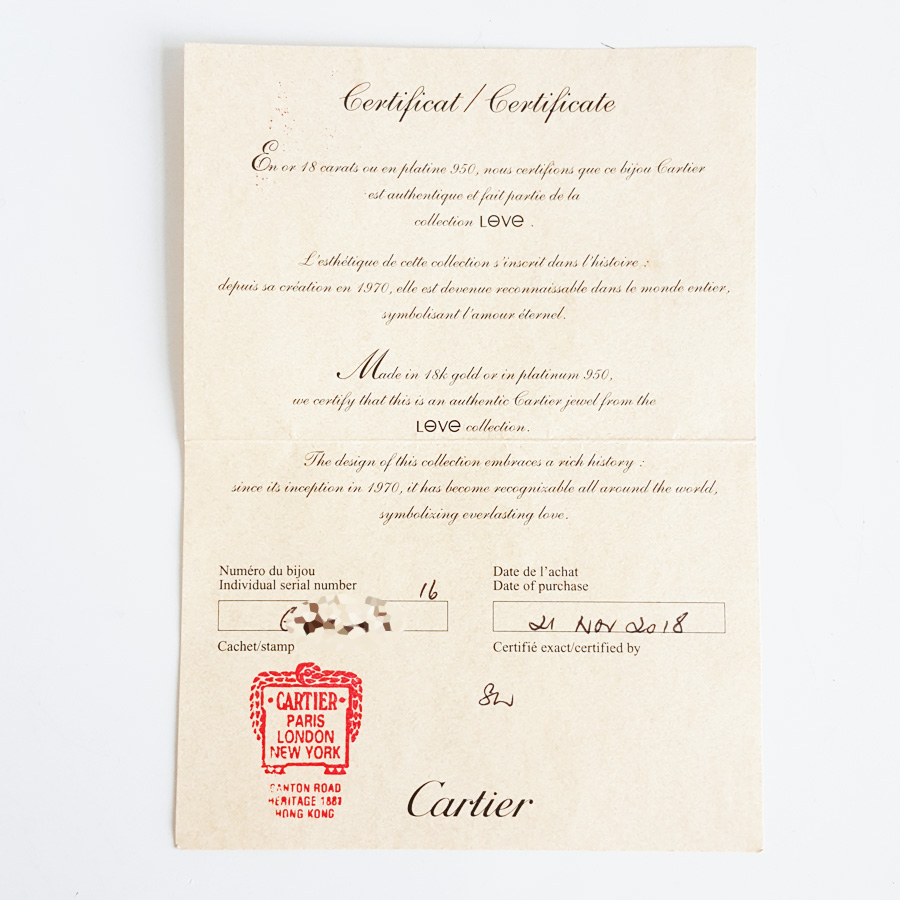 Certificat / Certificate
En or 18 carats ou en platine 950, nous certifions que ce bijou Cartier
est authentique et fait partie de la
collection LOVE .
L'esthétique de cette collection s'inscrit dans l'histoire :
depuis sa création en 1970, elle est devenue reconnaissable dans le monde entier,
symbolisant l'amour éternel.
Made in 18k gold or in platinum 950,
we certify that this is an authentic Cartier jewel from the
LOVE collection.
The design of this collection embraces a rich history :
since its inception in 1970, it has become recognizable all around the world,
symbolizing everlasting love.
Numéro du bijou
Individual serial number
16
Date de l'achat
Date of purchase
21 NOV 2018
Cachet/stamp
Certifié exact/certified by
CARTIER
PARIS
LONDON
NEW YORK
CANTON ROAD
HERITAGE 1881
HONG KONG
Cartier